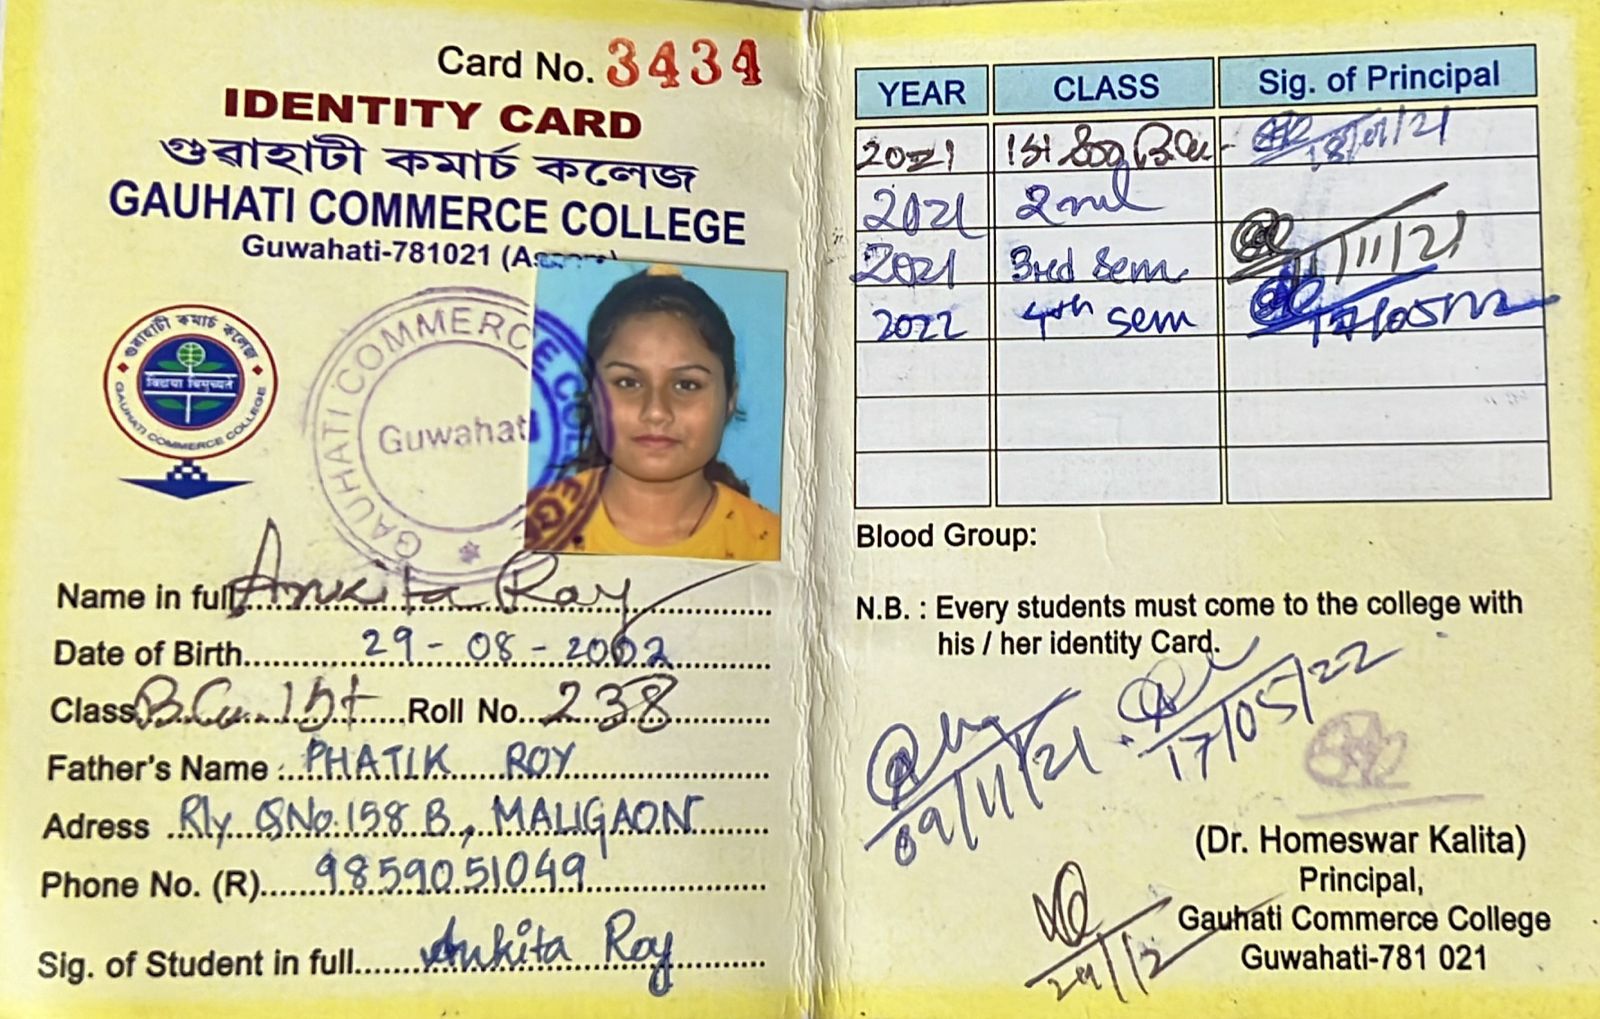 Card No. 3434
IDENTITY CARD
গুৱাহাটী কমাৰ্চ কলেজ
GAUHATI COMMERCE COLLEGE
Guwahati-781021
গুৱাহাটী কমাৰ্চ কলেজ
GAUHATI COMMERCE COLLEGE
GAUHATI COMMERCE COLLEGE
Guwahati
Name in full Ankita Ray
Date of Birth 29-08-2002
Class B.Com 1st Roll No. 238
Father's Name : PHATIK ROY
Adress Rly QNo. 158 B, MALIGAON
Phone No. (R) 9859051049
Sig. of Student in full Ankita Ray
YEAR CLASS Sig. of Principal
2021 1st
2021 2nd
2021 3rd Sem 11/11/21
2022 4th Sem 17/05/22
Blood Group:
N.B. : Every students must come to the college with
his / her identity Card.
09/11/21
17/05/22
(Dr. Homeswar Kalita)
Principal,
Gauhati Commerce College
Guwahati-781 021